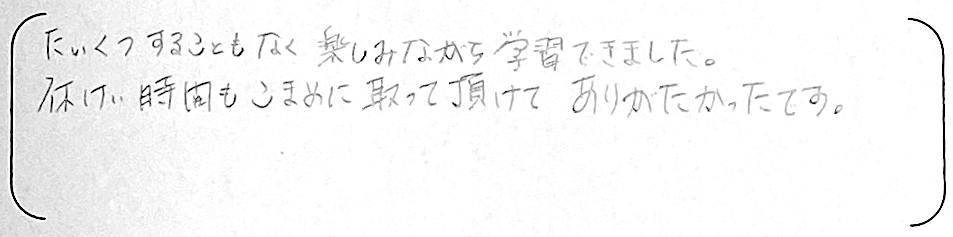 たいくつすることもなく楽しみながら学習できました。
休けい時間もこまめに取って頂けてありがたかったです。